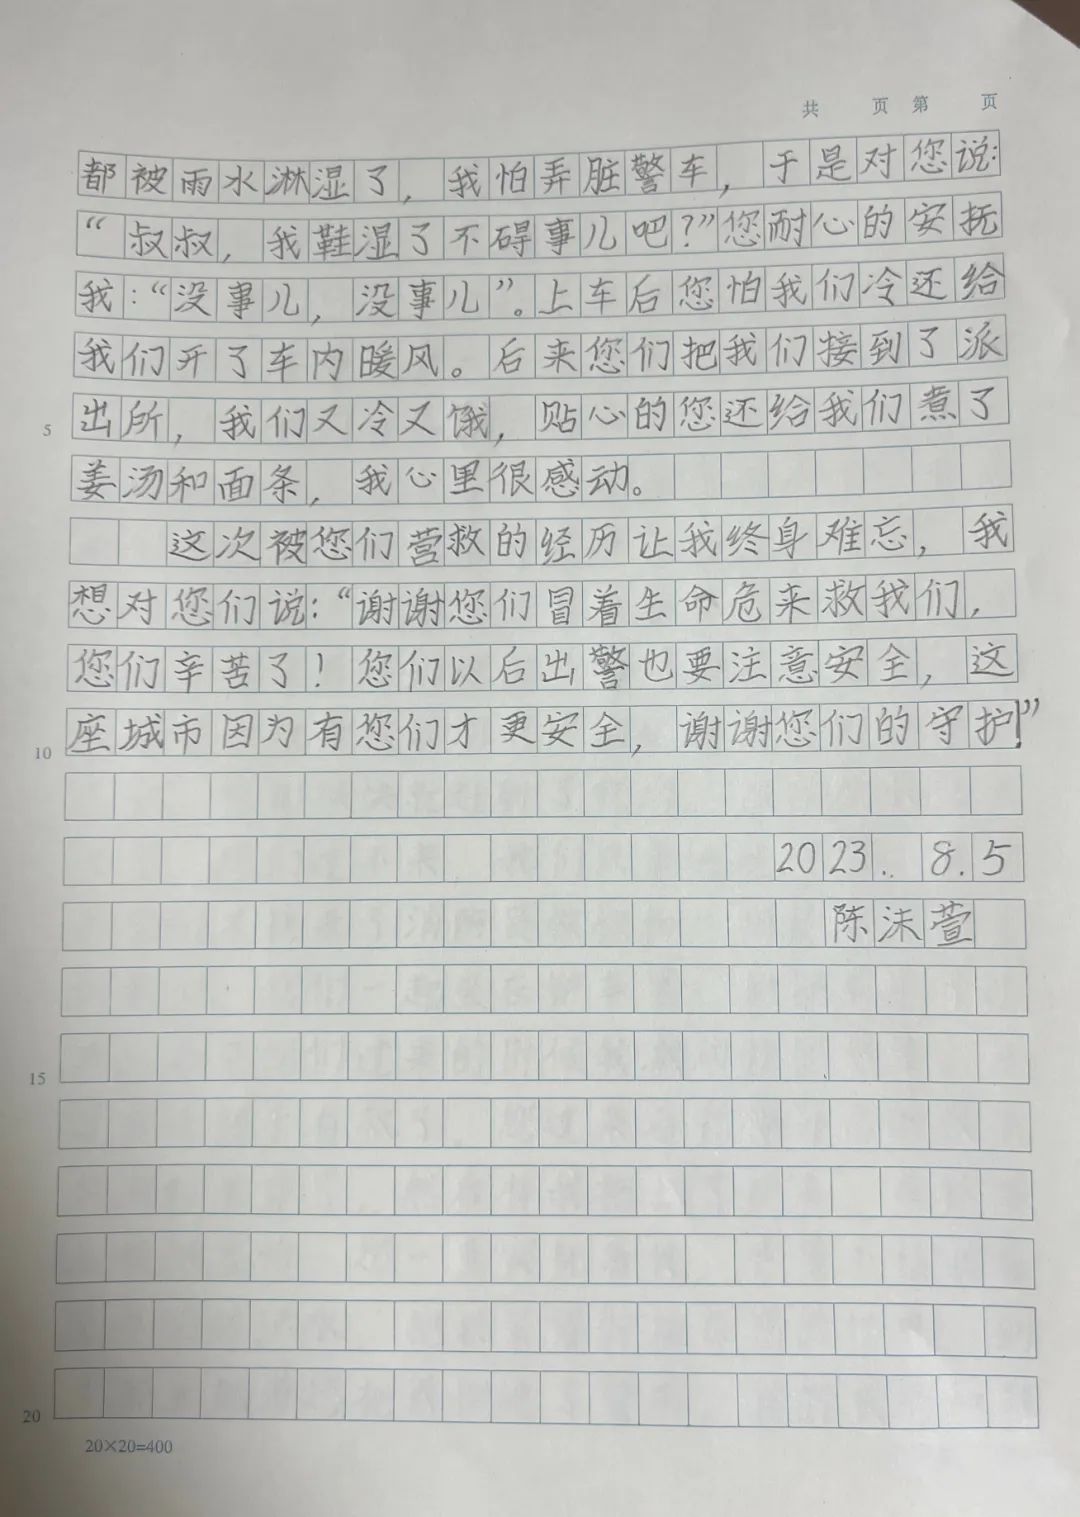 共 页 第 页
都被雨水淋湿了，我怕弄脏警车，于是对您说：
“叔叔，我鞋湿了不碍事儿吧？”您耐心的安抚
我：“没事儿，没事儿”。上车后您怕我们冷还给
我们开了车内暖风。后来您们把我们接到了派
5 出所，我们又冷又饿，贴心的您还给我们煮了
姜汤和面条，我心里很感动。
这次被您们营救的经历让我终身难忘，我
想对您们说：“谢谢您们冒着生命危来救我们，
您们辛苦了！您们以后出警也要注意安全，这
10 座城市因为有您们才更安全，谢谢您们的守护！”
2023.. 8.5
陈沫萱
15
20
20×20=400